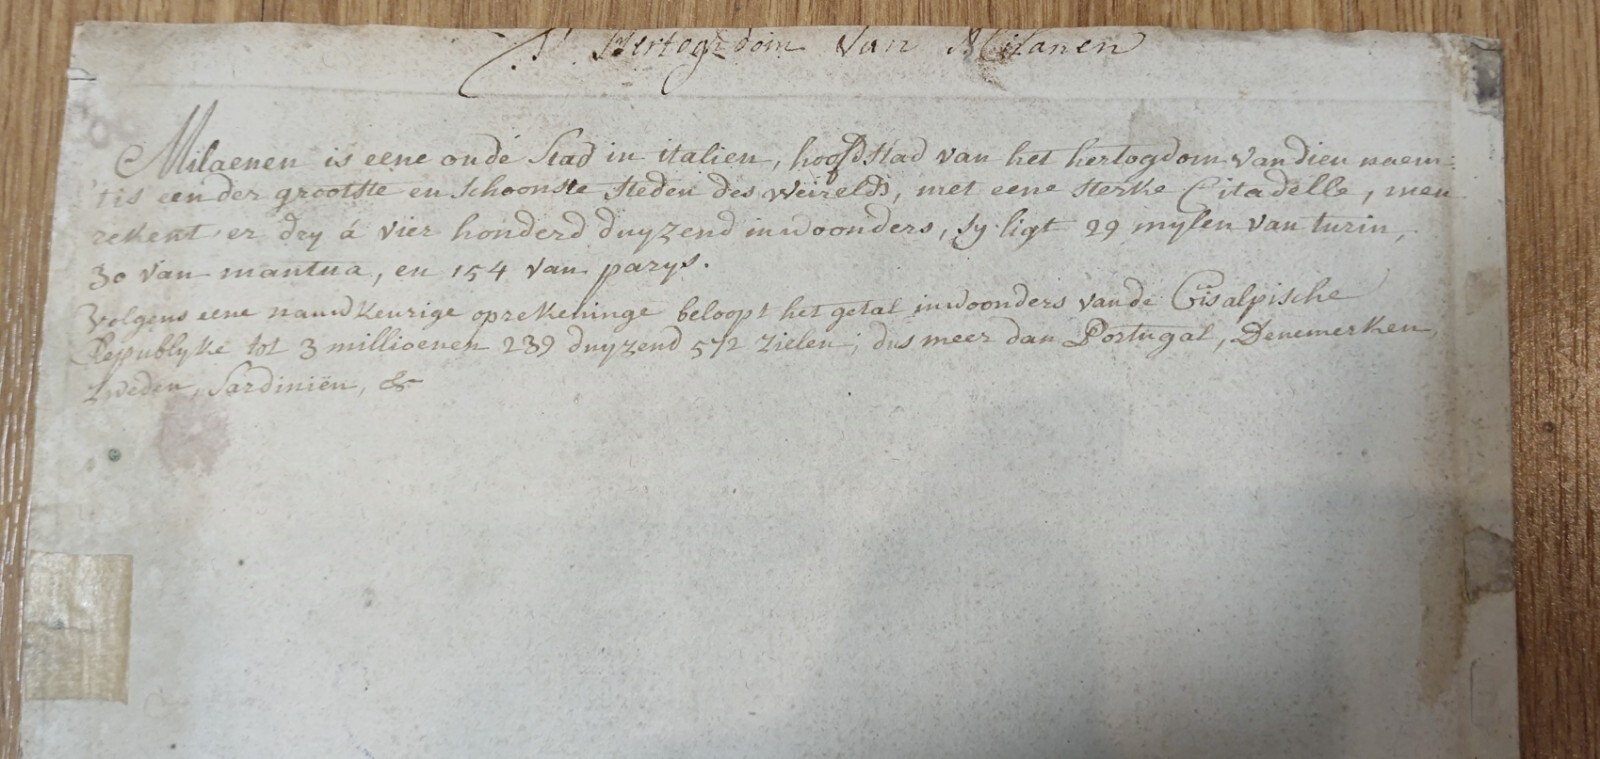 't Hertogdom van Milanen
Milaenen is eene oude Stad in italien, hoofdstad van het hertogdom van dien naem:
'tis een der grootste en schoonste steden des weirelds, met eene sterke Citadelle, men
rekent er dry á vier honderd duyzend inwoonders, sy ligt 29 mylen van turin,
30 van mantua, en 154 van parys.
Volgens eene nauwkeurige oprekeninge beloopt het getal inwoonders van de Cisalpische
Republyke tot 3 millioenen 239 duyzend 572 zielen; dus meer dan Portugal, Denemerken,
Zweden, Sardiniën, &